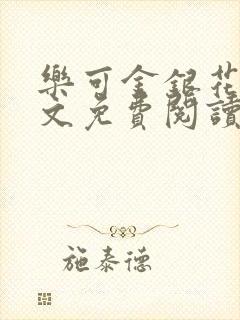 樂可金銀花
文免費閱讀
施泰德